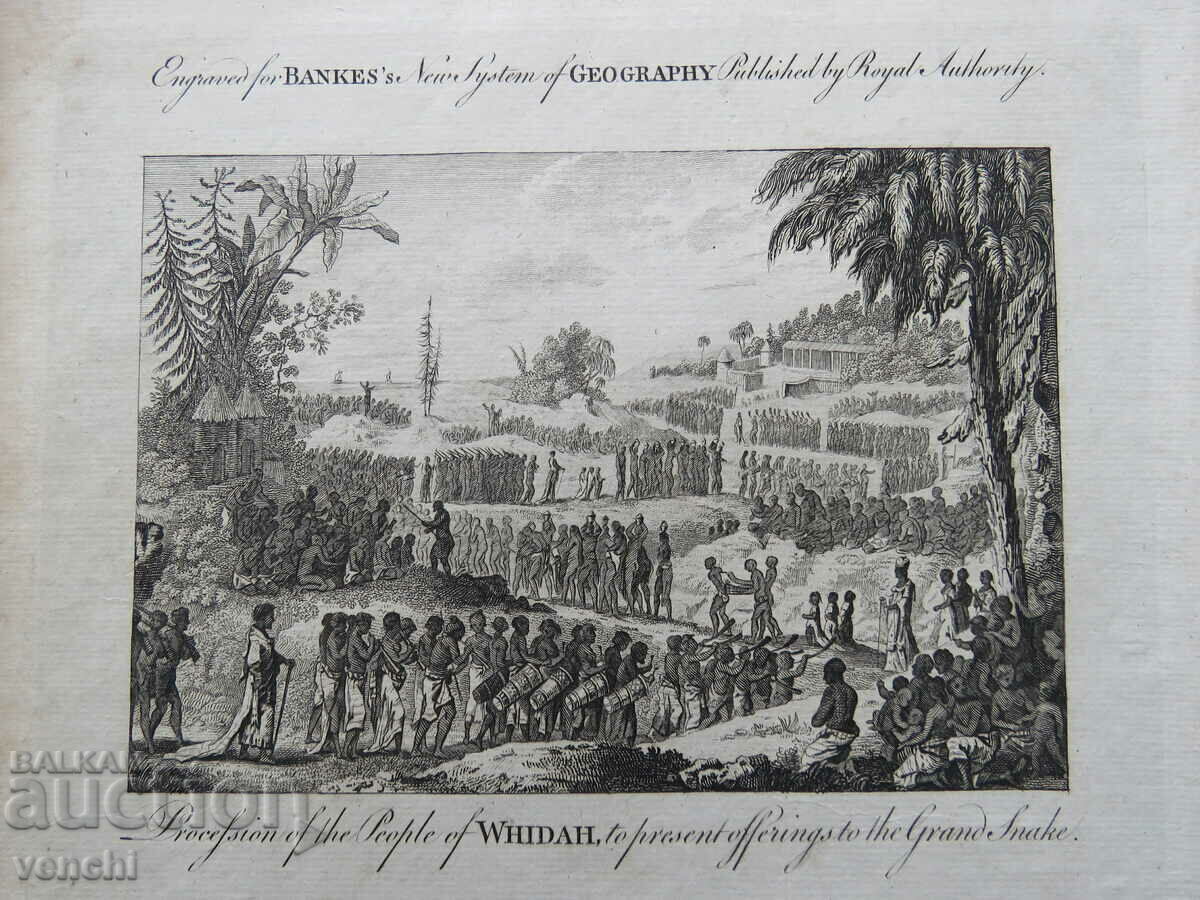 Engraved for BANKES's New System of GEOGRAPHY Published by Royal Authority.
BALKAN
auction
venchi
Procession of the People of WHIDAH, to present offerings to the Grand Snake.